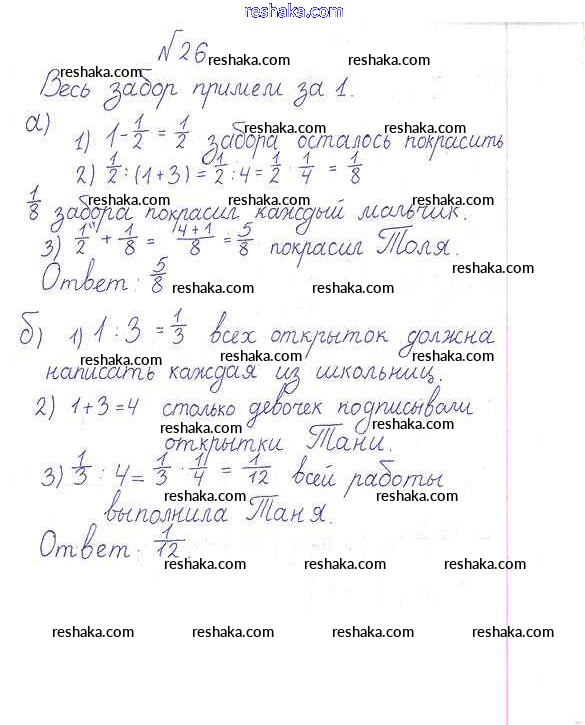 reshaka.com
№26
reshaka.com reshaka.com
Весь забор примем за 1.
reshaka.com reshaka.com
а)
1) 1 - 1/2 = 1/2 забора осталось покрасить
reshaka.com reshaka.com
2) 1/2 : (1+3) = 1/2 : 4 = 1/2 · 1/4 = 1/8
reshaka.com reshaka.com
reshaka.com reshaka.com reshaka.com
1/8 забора покрасил каждый мальчик.
reshaka.com reshaka.com
3) 1/2 + 1/8 = 4+1/8 = 5/8 покрасил Толя.
reshaka.com
Ответ: 5/8 reshaka.com reshaka.com
б) 1) 1 : 3 = 1/3 всех открыток должна
reshaka.com reshaka.com reshaka.com
написать каждая из школьниц.
reshaka.com reshaka.com
2) 1+3=4 столько девочек подписывали
reshaka.com reshaka.com
открытки Тани.
reshaka.com reshaka.com
3) 1/3 : 4 = 1/3 · 1/4 = 1/12 всей работы
reshaka.com reshaka.com
выполнила Таня.
reshaka.com reshaka.com
Ответ: 1/12
reshaka.com reshaka.com reshaka.com
reshaka.com reshaka.com reshaka.com